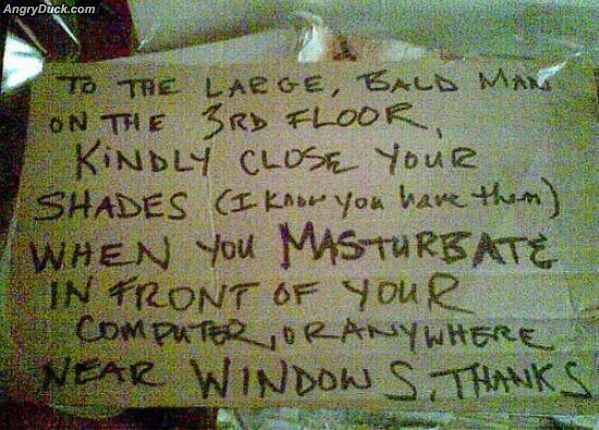 AngryDuck.com
TO THE LARGE, BALD MAN
ON THE 3RD FLOOR,
KINDLY CLOSE YOUR
SHADES (I KNOW YOU HAVE THEM)
WHEN YOU MASTURBATE
IN FRONT OF YOUR
COMPUTER, OR ANYWHERE
NEAR WINDOWS. THANKS